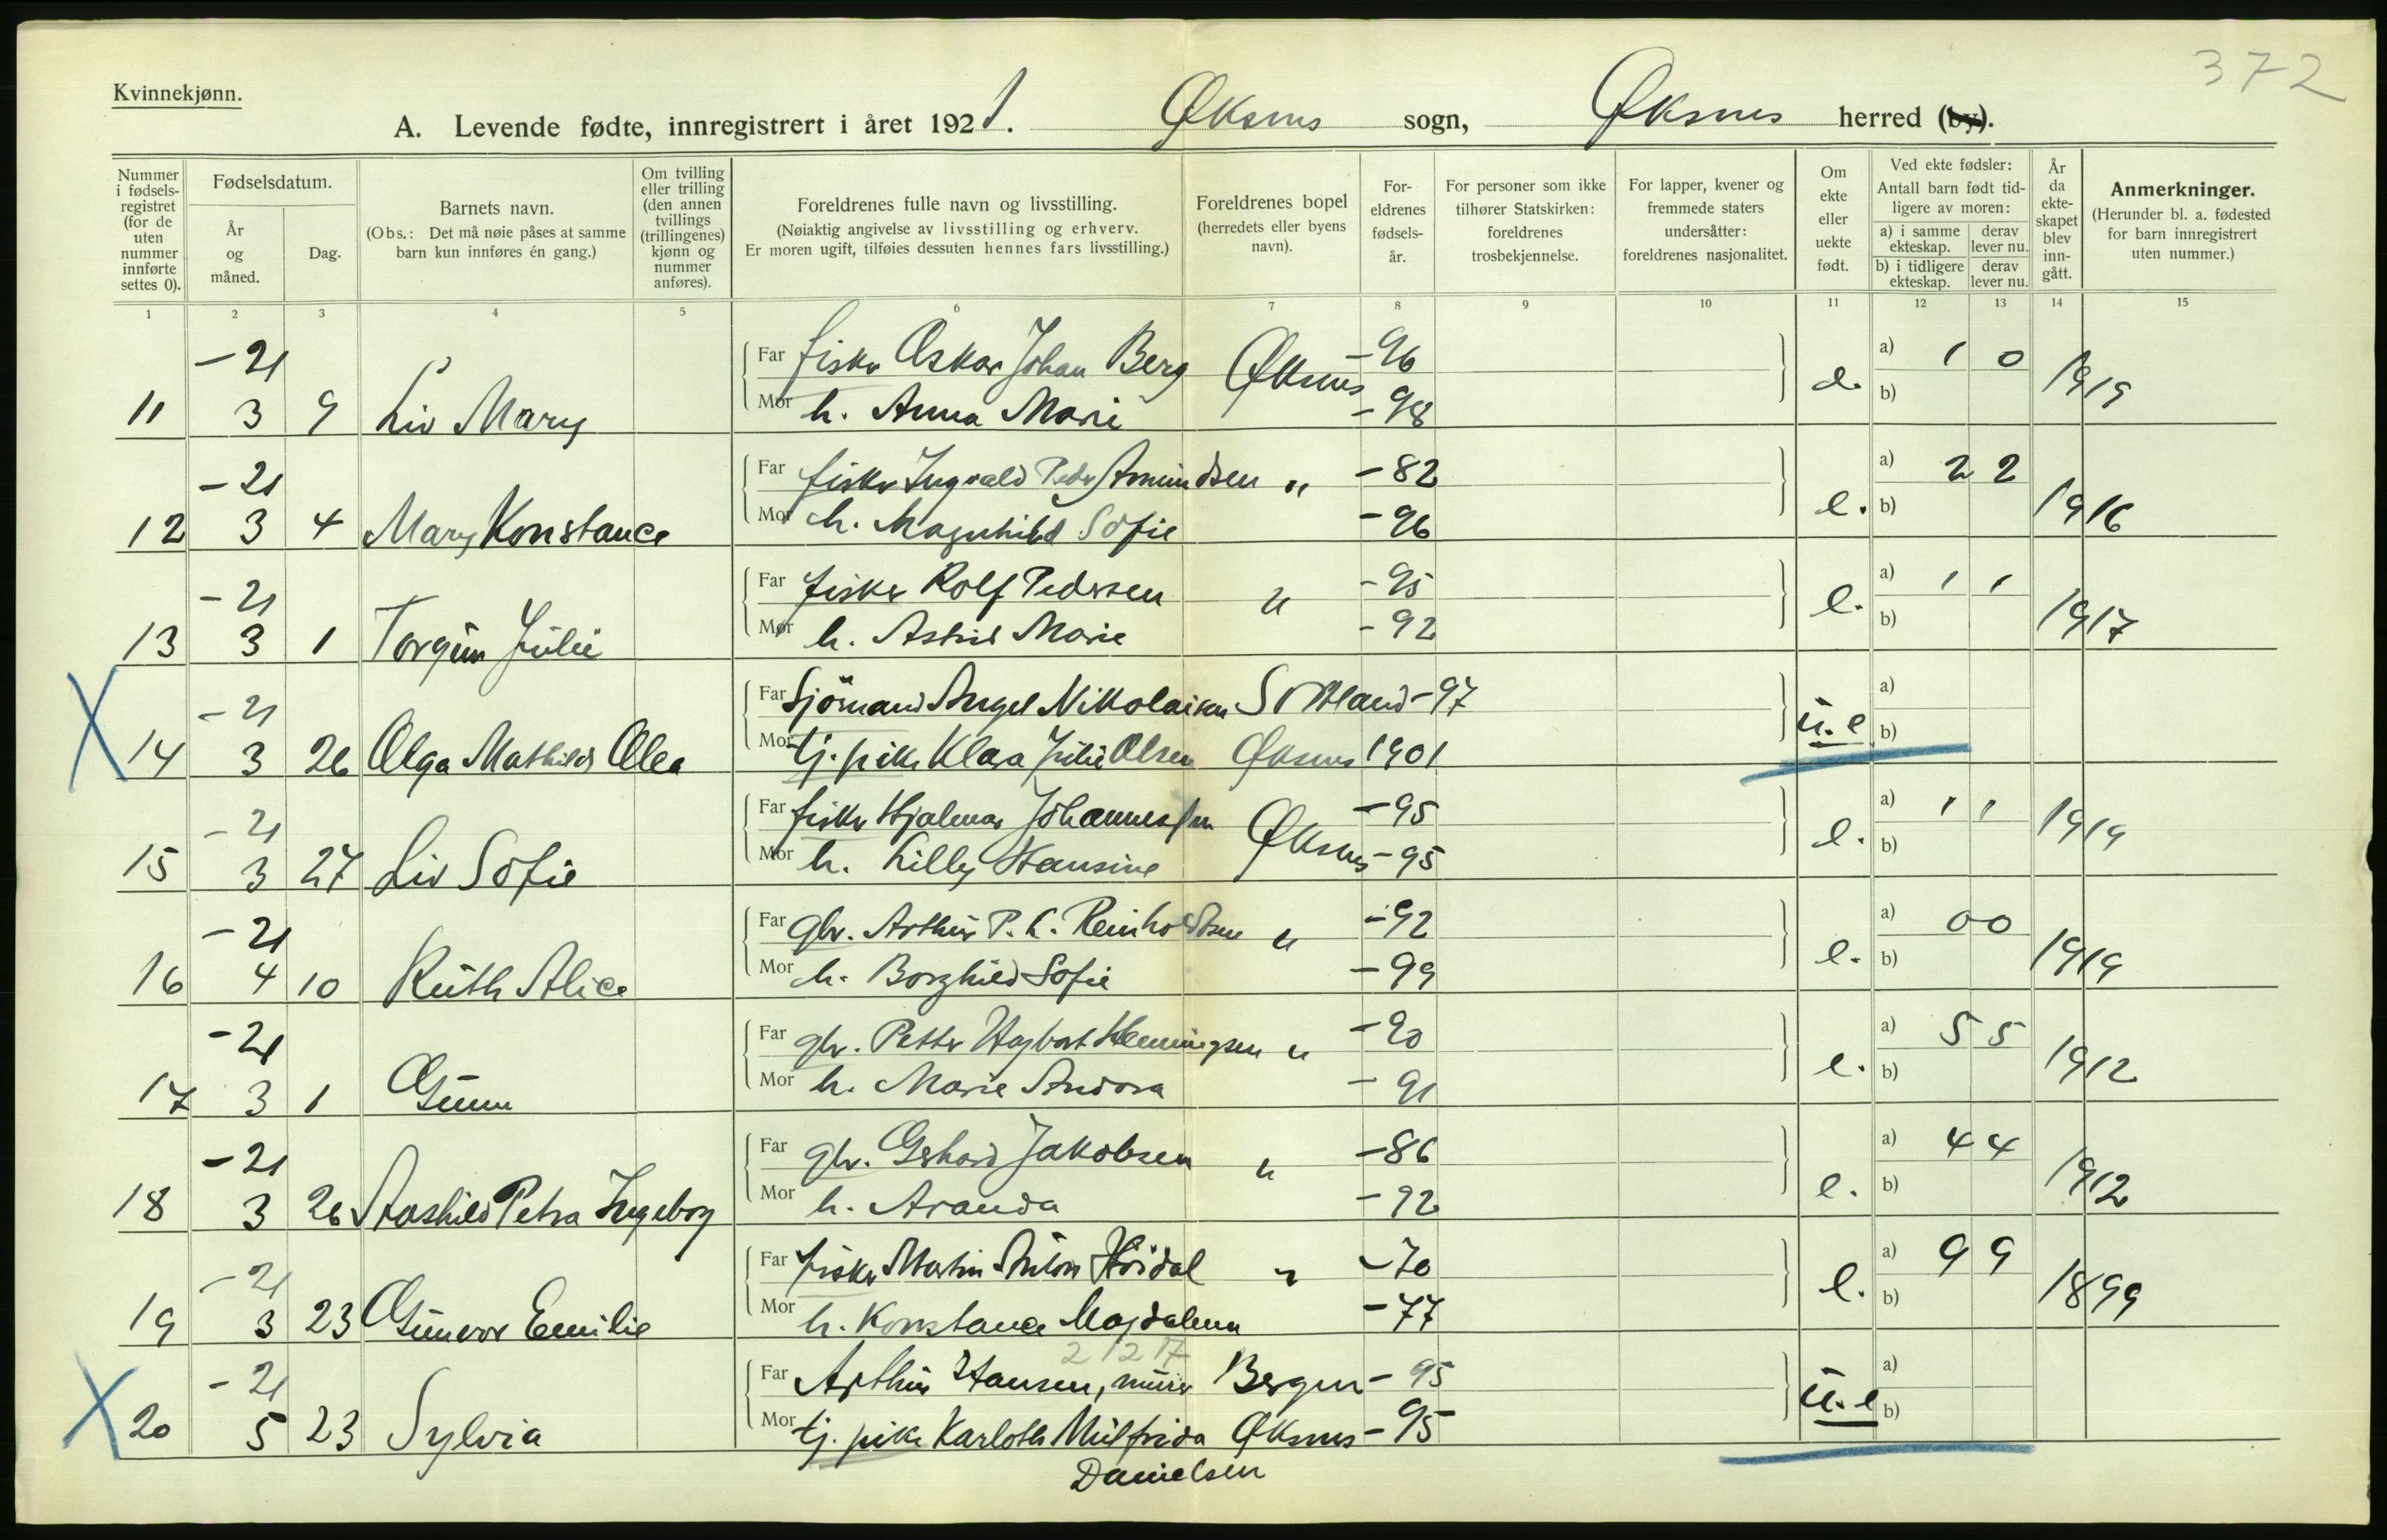 372
Kvinnekjønn.
A. Levende fødte, innregistrert i året 1921. Øksnes sogn, Øksnes herred (by).
Nummer i fødsels-registret (for de uten nummer innførte settes 0).
Fødselsdatum.
År og måned.
Dag.
Barnets navn.
(Obs.: Det må nøie påses at samme barn kun innføres én gang.)
Om tvilling eller trilling (den annen tvillings (trillingenes) kjønn og nummer anføres).
Foreldrenes fulle navn og livsstilling.
(Nøiaktig angivelse av livsstilling og erhverv.
Er moren ugift, tilføies dessuten hennes fars livsstilling.)
Foreldrenes bopel (herredets eller byens navn).
For-eldrenes fødsels-år.
For personer som ikke tilhører Statskirken: foreldrenes trosbekjennelse.
For lapper, kvener og fremmede staters undersåtter: foreldrenes nasjonalitet.
Om ekte eller uekte født.
Ved ekte fødsler:
Antall barn født tid-ligere av moren:
a) i samme ekteskap.
derav lever nu.
b) i tidligere ekteskap.
derav lever nu.
År da ekte-skapet blev inn-gått.
Anmerkninger.
(Herunder bl. a. fødested for barn innregistrert uten nummer.)
1 2 3 4 5 6 7 8 9 10 11 12 13 14 15
-21 Far fisker Oskar Johan Berg Øksnes -96 a) 1 0
11 3 9 Liv Mary Mor h. Anna Marie -98 e. b) 1919
-21 Far fisker Ingvald Peder Amundsen " -82 a) 2 2
12 3 4 Mary Konstance Mor h. Magnhild Sofie -96 e. b) 1916
-21 Far fisker Rolf Pedersen " -95 a) 1 1
13 3 1 Torgun Julie Mor h. Astrid Marie -92 e. b) 1917
X -21 Far Sjömand Angel Nikolaisen Sortland -97 a)
14 3 26 Olga Mathilde Olea Mor tj. pike Klara Julie Olsen Øksnes 1901 u.e b)
-21 Far fisker Hjalmar Johannessen Øksnes -95 a) 1 1
15 3 27 Liv Sofie Mor h. Lilly Hansine -95 e. b) 1919
-21 Far gbr. Arthur P. K. Reinholdtsen " -92 a) 0 0
16 4 10 Ruth Alice Mor h. Borghild Sofie -99 e. b) 1919
-21 Far gbr. Petter Hagbart Henningsen " -90 a) 5 5
17 3 1 Gunn Mor h. Marie Andora -91 e. b) 1912
-21 Far gbr. Gerhard Jakobsen " -86 a) 4 4
18 3 26 Aashild Petra Ingeborg Mor h. Aranda -92 e. b) 1912
-21 Far fisker Martin Anton Höidal " -70 a) 9 9
19 3 23 Gunvor Emilie Mor h. Konstance Magdalena -77 e. b) 1899
21217
X -21 Far Arthur Hansen, murer Bergen -95 a)
20 5 23 Sylvia Mor tj. pike Karlotte Milfrida Øksnes -95 u.e b)
Danielsen